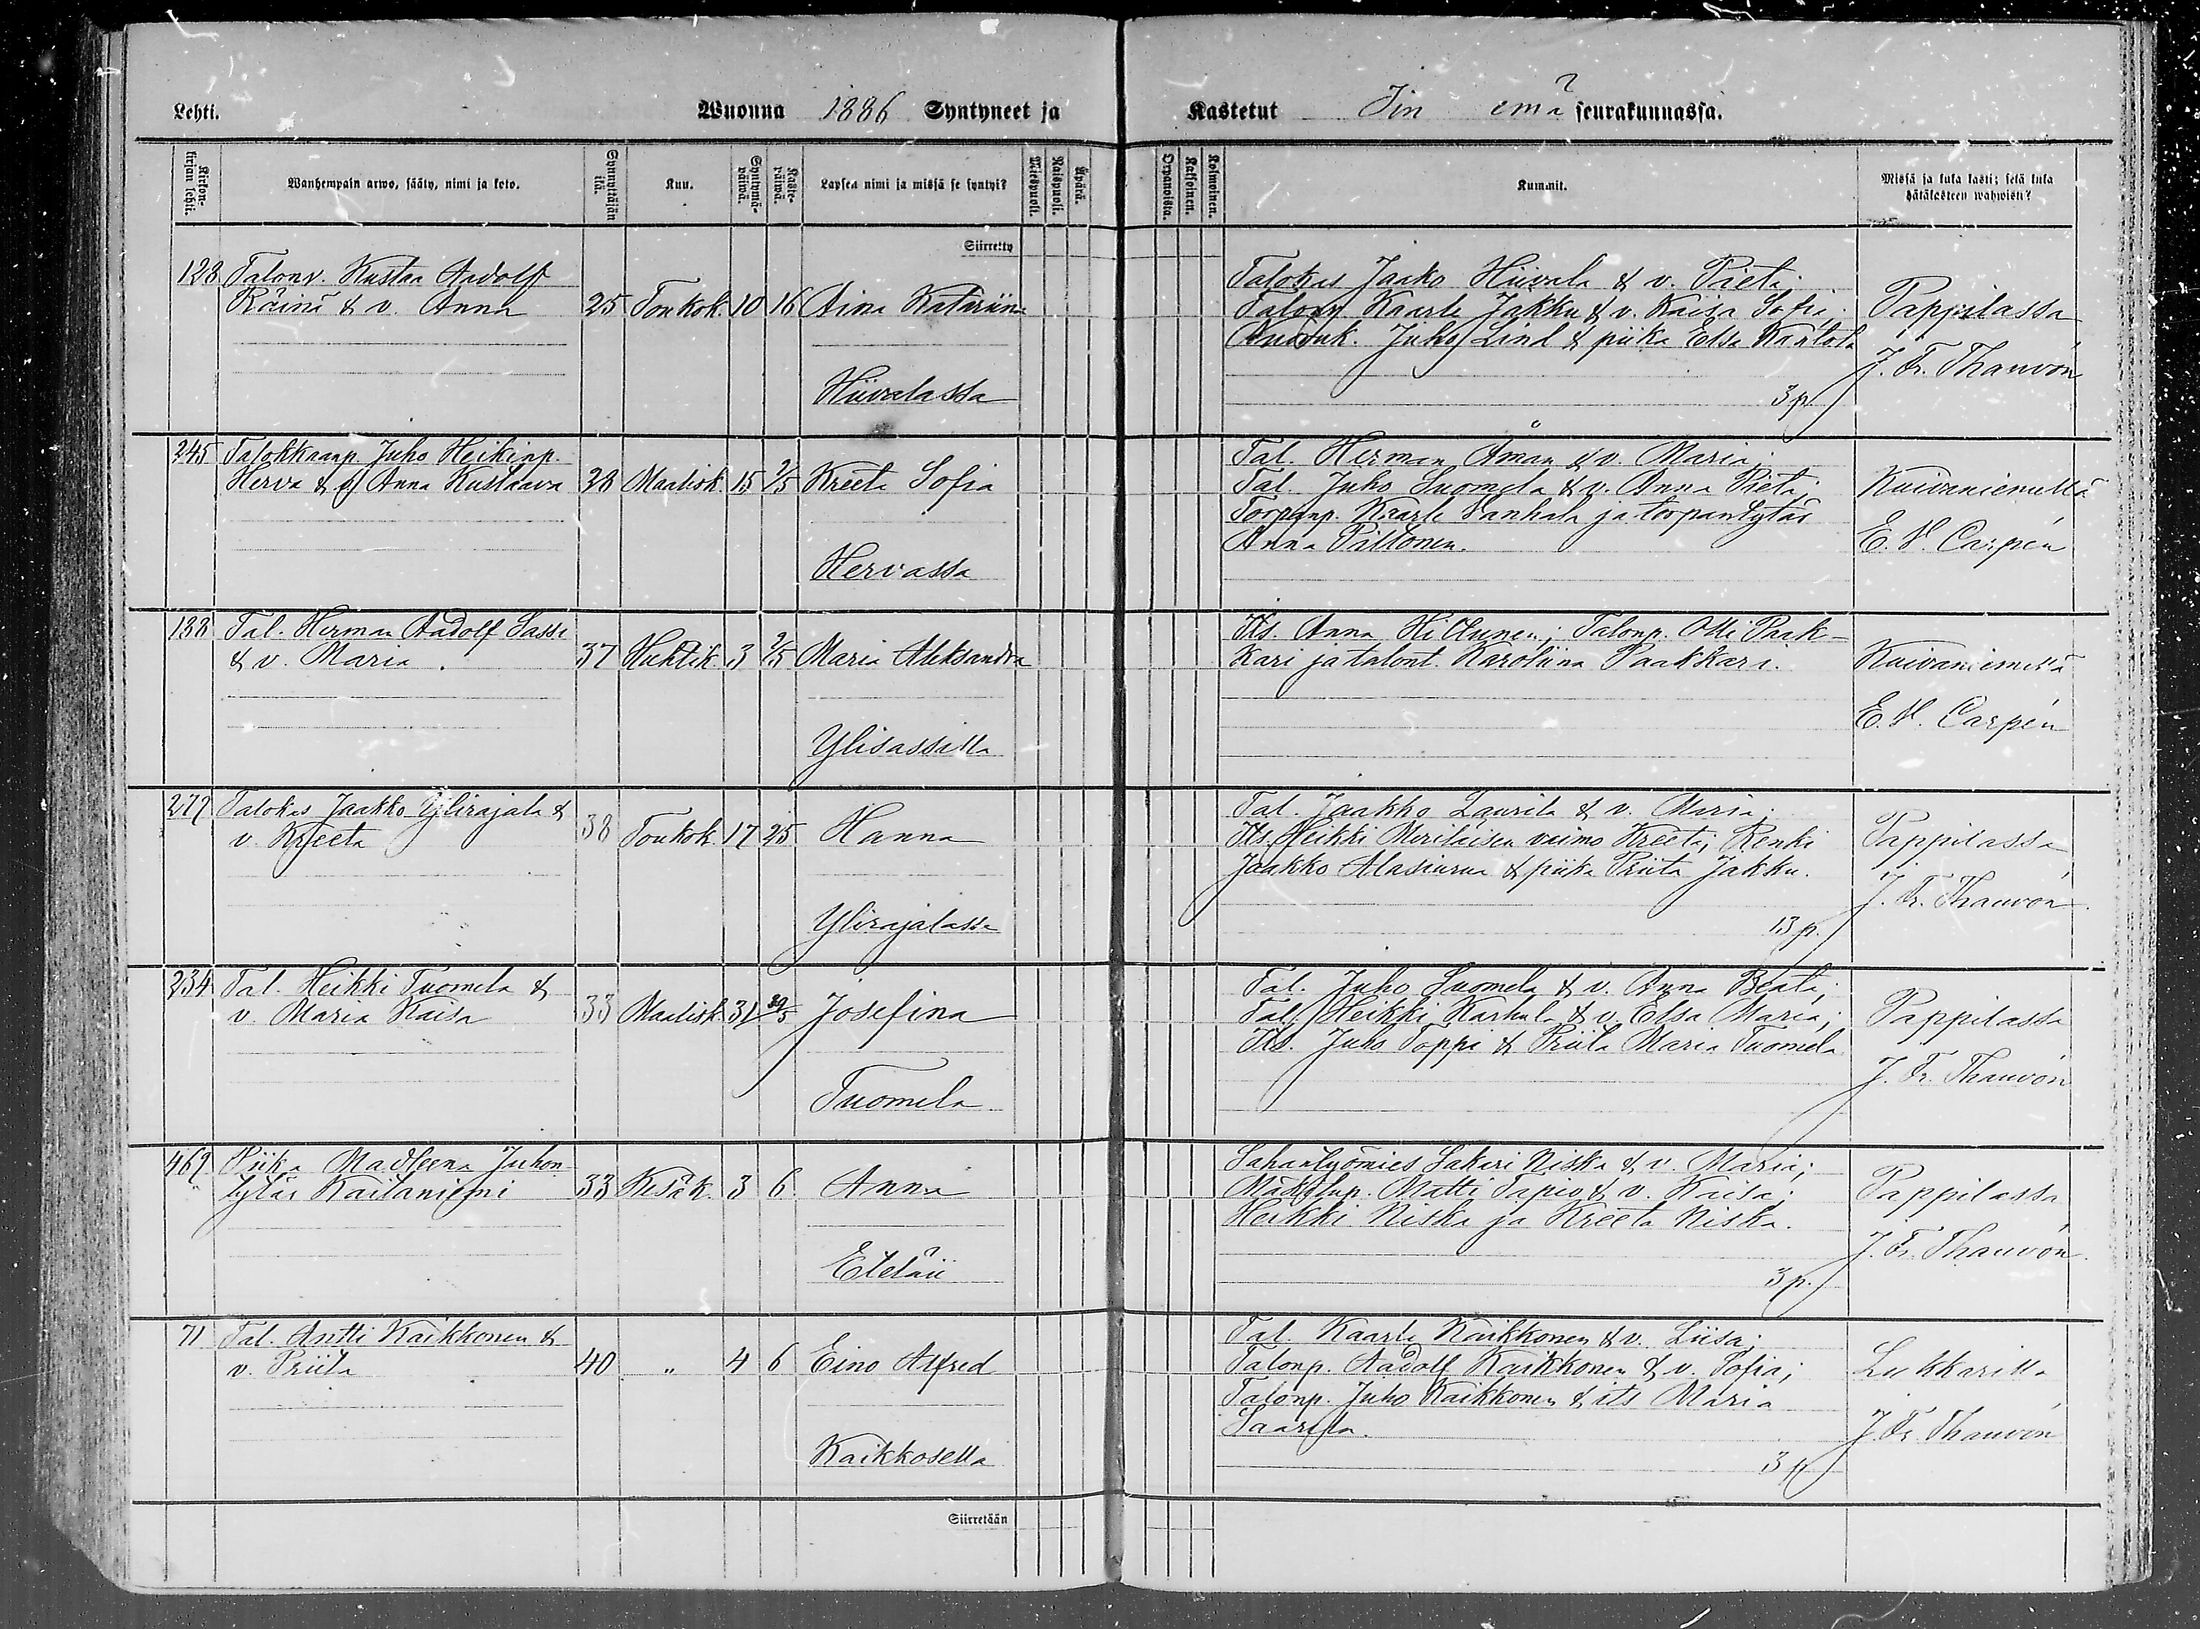 Lehti.
Wuonna 1886 Syntyneet ja Kastetut Iin emä seurakunnassa.
Kirkon-kirjan lehti.
Wanhempain arwo, sääty, nimi ja koto.
Synnyttäjän ikä.
Kuu.
Syntymä-päiwä.
Kaste-päiwä.
Lapsen nimi ja missä se syntyi?
Miespuoli.
Naispuoli.
Äpärä.
Orpanoista.
Kaksoinen.
Kolmoinen.
Kummit.
Missä ja kuka kasti; sekä kuka hätäkasteen wahwisti?
Siirretty
128 Talonv. Kustaa Aadolf
Räinä & v. Anna 25 Toukok. 10 16 Aina Katariina
Hiivalassa
Talokas Jaako Hiivala & v. Pieta;
Talonp. Kaarle Jakku & v. Kaisa Sofia;
Juho Lind & piika Elsa Karlota
3 p.
Pappilassa
J. Fr. Thauvón
245 Talokkaanp. Juho Heikinp.
Herva & v. Anna Kustaava 28 Maalisk. 15 2/5 Kreeta Sofia
Hervassa
Tal. Herman Åman & v. Maria;
Tal. Juho Suomela & v. Anna Pieta;
Torpanp. Kaarle Vanhala ja torpantytär
Anna Piltonen.
Kuivaniemellä
E. V. Carpén
138 Tal. Herman Aadolf Sassi
& v. Maria. 37 Huhtik. 3 2/5 Maria Aleksandra
Ylisassilla
Its. Anna Hiltunen; Talonp. Olli Paak-
kari ja talont. Karoliina Paakkari.
Kuivaniemellä
E. V. Carpén
277 Talokas Jaakko Ylirajala &
v. Kreeta 38 Toukok. 17 25 Hanna
Ylirajalassa
Tal. Jaakko Laurila & v. Maria;
Its. Heikki Meriläisen vaimo Kreeta; Renki
Jaakko Alasiurua & piika Priita Jakku.
13 p.
Pappilassa
J. Fr. Thauvón.
234 Tal. Heikki Tuomela &
v. Maria Kaisa 33 Maalisk. 31 30/5 Josefina
Tuomela
Tal. Juho Suomela & v. Anna Beata;
Tal. Heikki Karhula & v. Elsa Maria;
Its. Juho Toppi & Priita Maria Tuomela
Pappilassa
J. Fr. Thauvón
469 Piika Madleena Juhon
tytär Kaitaniemi 33 Kesäk. 3 6 Anna
Eteläii
Sahantyömies Sakari Niska & v. Maria;
Mäkitup. Matti Tapio & v. Kaisa;
Heikki Niska ja Kreeta Niska.
3 p.
Pappilassa
J. Fr. Thauvón.
71 Tal. Antti Kaikkonen &
v. Priita 40 " 4 6 Eino Alfred
Kaikkosella
Tal. Kaarle Kaikkonen & v. Liisa;
Talonp. Aadolf Kaikkonen & v. Sofia;
Talonp. Juho Kaikkonen & its Maria
Saarela.
3 p.
Lukkarilla
J. Fr. Thauvón
Siirretään